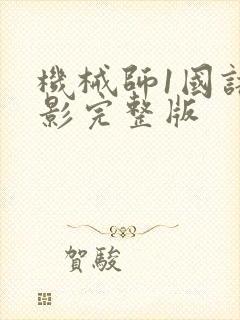 機械師1國語
影完整版
賀駿